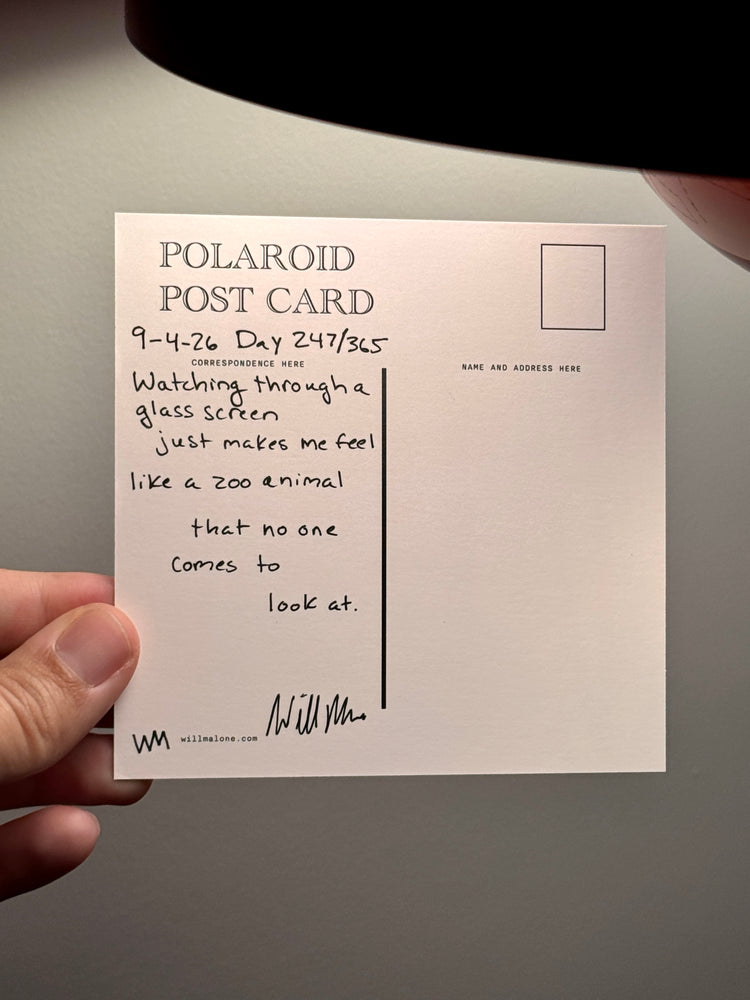 POLAROID
POST CARD
9-4-26 Day 247/365
CORRESPONDENCE HERE
NAME AND ADDRESS HERE
Watching through a
glass screen
just makes me feel
like a zoo animal
that no one
comes to
look at.
Will M
WM willmalone.com